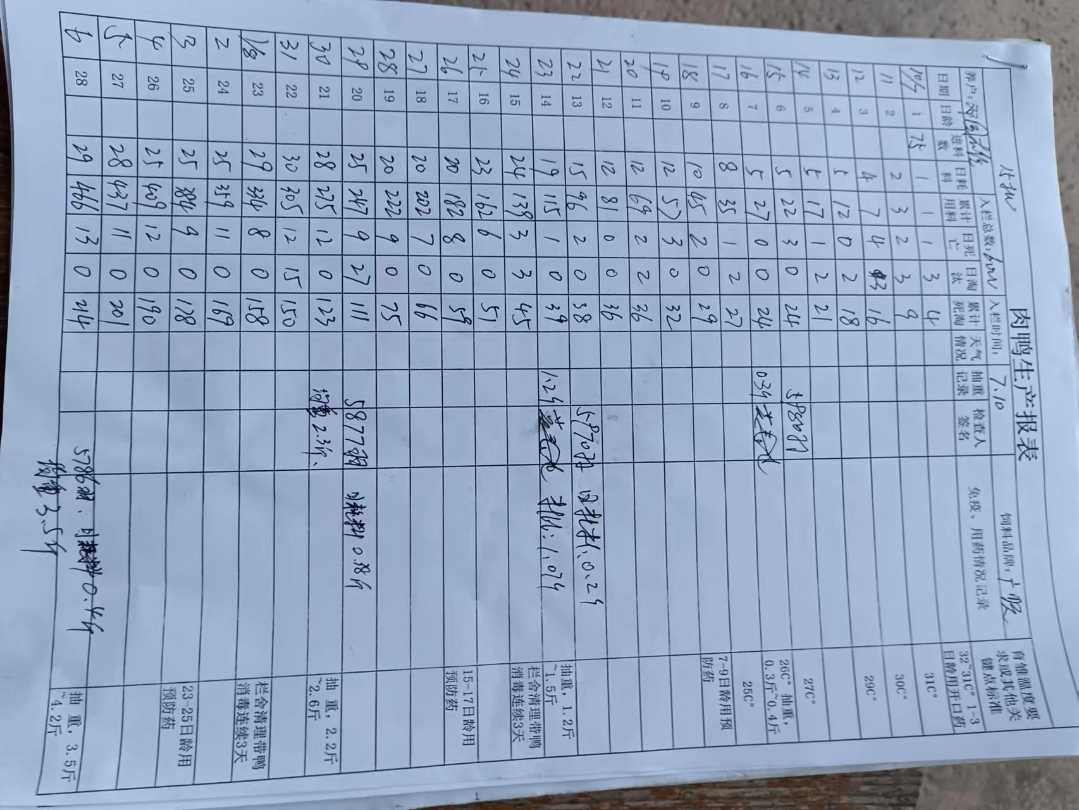 肉鸭生产报表
养户: 入栏总数: 入栏时间: 7.10 饲料品牌: 广顺
日期 日龄 进料数 日耗料 累计用料 日死亡 日淘汰 累计死淘 天气情况 抽重记录 检查人签名 免疫、用药情况记录 育雏温度要求或其他关键点标准
32~31C° 1-3日龄用开口药
10/7 1 75 1 1 1 3 4 31C°
11 2 2 3 2 3 9 30C°
12 3 4 7 4 3 16 29C°
13 4 5 12 0 2 18
14 5 5 17 1 2 21 27C°
15 6 5 22 3 0 24 26C° 抽重,0.3斤~0.4斤
16 7 5 27 0 0 24 25C°
17 8 8 35 1 2 27 7-9日龄用预防药
18 9 10 45 2 0 29
19 10 12 57 3 0 32
20 11 12 69 2 2 36
21 12 12 81 0 0 36
22 13 15 96 2 0 38 5870 日耗料:0.2斤 抽重,1.2斤~1.5斤
23 14 19 115 1 0 39 1.2斤
24 15 24 139 3 3 45 栏舍清理带鸭消毒连续3天
25 16 23 162 6 0 51
26 17 20 182 8 0 59 15-17日龄用预防药
27 18 20 202 7 0 66
28 19 20 222 9 0 75
29 20 25 247 9 27 111 5877羽 日耗料0.38斤
30 21 28 275 12 0 123 均重2.3斤、 抽重,2.2斤~2.6斤
31 22 30 305 12 15 150
1/8 23 29 334 8 0 158 栏舍清理带鸭消毒连续3天
2 24 25 359 11 0 169
3 25 25 384 9 0 178 23-25日龄用预防药
4 26 25 409 12 0 190
5 27 28 437 11 0 201
6 28 29 466 13 0 214 5786羽、日耗料0.4斤 抽重,3.5斤~4.2斤
均重3.5斤